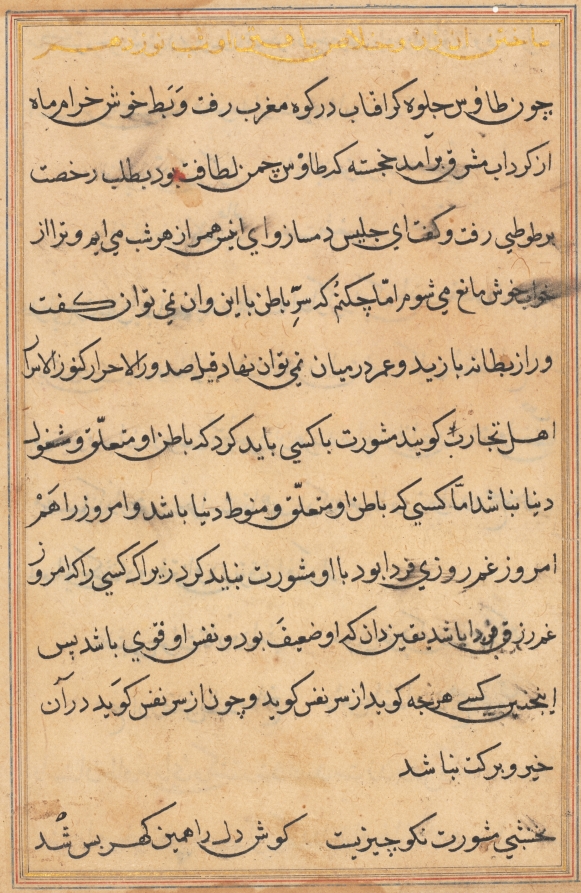 چون طاوس جلوه کر افتاب در کوه مغرب رفت و بَط خوش خرام ماه
از کرداب مشرق برآمد خجسته که طاوس چمن لطافت بود بطلب رخصت
بر طوطی رفت و کفت ای جلیس دمساز و ای انیس همراز هر شب می ایم و ترا از
خواب خوش مانع می شوم امّا چکنم که سرِّ باطن با این وان نمی توان کفت
و راز بطانه با زید و عمر در میان نمی توان نهاد قیل صدور الاحرار کنوز الاسرار
اهل تجارب کویند مشورت با کسی باید کرد که باطن او متعلّق و مشغول
دنیا نباشد امّا کسی که باطن او متعلّق و منوط دنیا باشد و امروز را هَمْ
امروز غم روزی فردا بود با او مشورت نباید کرد زیرا که کسی را که امروز
غم رزق فردا باشد یقین دان که او ضعیف بود و نفس او قوی باشد پس
اینچنین کسی هرچه کوید از سر نفس کوید و چون از سر نفس کوید در آن
خیر و برکت نباشد
نخشبی مشورت نکو چیزیست کوش دل را همین کهر بس شُد